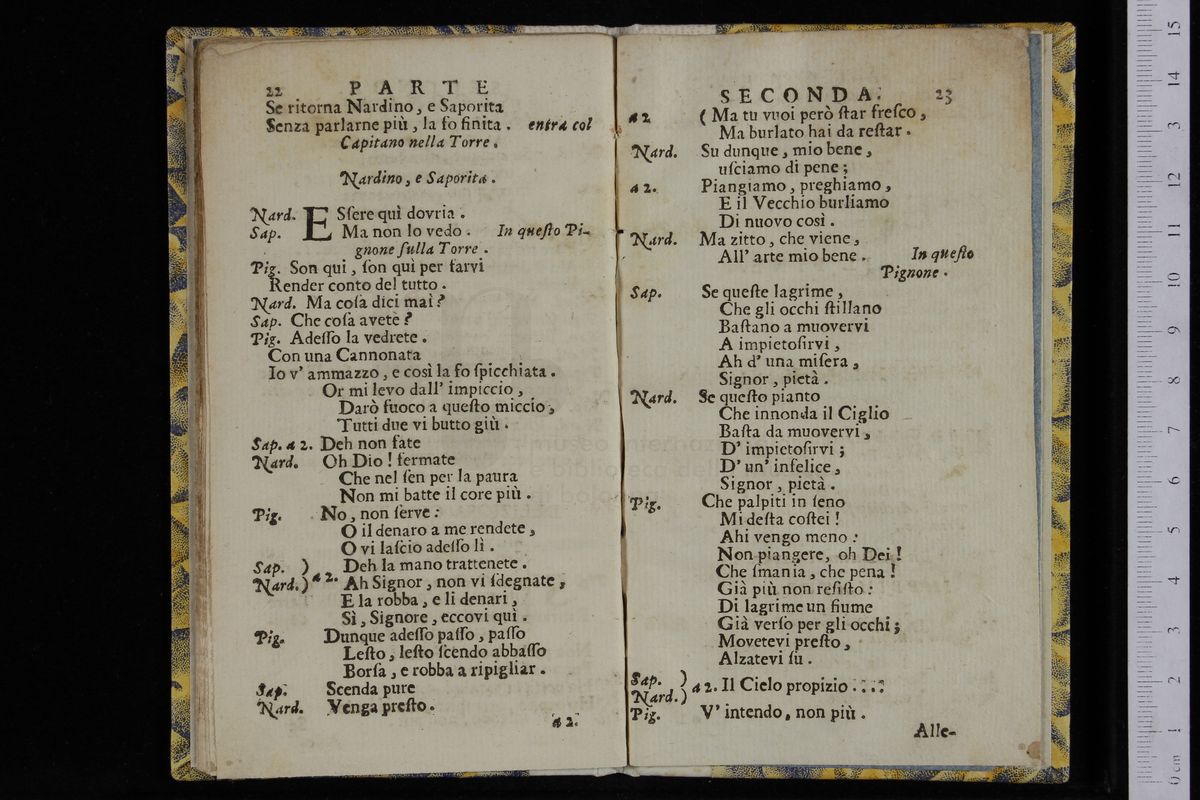 22 PARTE
Se ritorna Nardino, e Saporita
Senza parlarne più, la fo finita. entra col
Capitano nella Torre.
Nardino, e Saporita.
Nard. ESſere quì dovria.
Sap. Ma non lo vedo. In queſto Pi-
gnone ſulla Torre.
Pig. Son qui, ſon qui per farvi
Render conto del tutto.
Nard. Ma coſa dici mai?
Sap. Che coſa avete?
Pig. Adeſſo la vedrete.
Con una Cannonata
Io v' ammazzo, e così la fo ſpicchiata.
Or mi levo dall' impiccio,
Darò fuoco a queſto miccio,
Tutti due vi butto giù.
Sap. a 2. Deh non fate
Nard. Oh Dio! fermate
Che nel ſen per la paura
Non mi batte il core più.
Pig. No, non ſerve:
O il denaro a me rendete,
O vi laſcio adeſſo lì.
Sap. ) Deh la mano trattenete.
Nard.) a 2. Ah Signor, non vi ſdegnate,
E la robba, e li denari,
Sì, Signore, eccovi quì.
Pig. Dunque adeſſo paſſo, paſſo
Leſto, leſto ſcendo abbaſſo
Borſa, e robba a ripigliar.
Sap. Scenda pure
Nard. Venga preſto.
a 2.
SECONDA. 23
a 2 (Ma tu vuoi però ſtar freſco,
Ma burlato hai da reſtar.
Nard. Su dunque, mio bene,
uſciamo di pene;
a 2. Piangiamo, preghiamo,
E il Vecchio burliamo
Di nuovo così.
Nard. Ma zitto, che viene,
All' arte mio bene. In queſto
Pignone.
Sap. Se queſte lagrime,
Che gli occhi ſtillano
Baſtano a muovervi
A impietoſirvi,
Ah d' una miſera,
Signor, pietà.
Nard. Se queſto pianto
Che innonda il Ciglio
Baſta da muovervi,
D' impietoſirvi;
D' un' infelice,
Signor, pietà.
Pig. Che palpiti in ſeno
Mi deſta coſtei!
Ahi vengo meno:
Non piangere, oh Dei!
Che ſmania, che pena!
Già più non reſiſto:
Di lagrime un fiume
Già verſo per gli occhi;
Movetevi preſto,
Alzatevi ſu.
Sap. )
Nard.) a 2. Il Cielo propizio....
Pig. V' intendo, non più.
Alle-